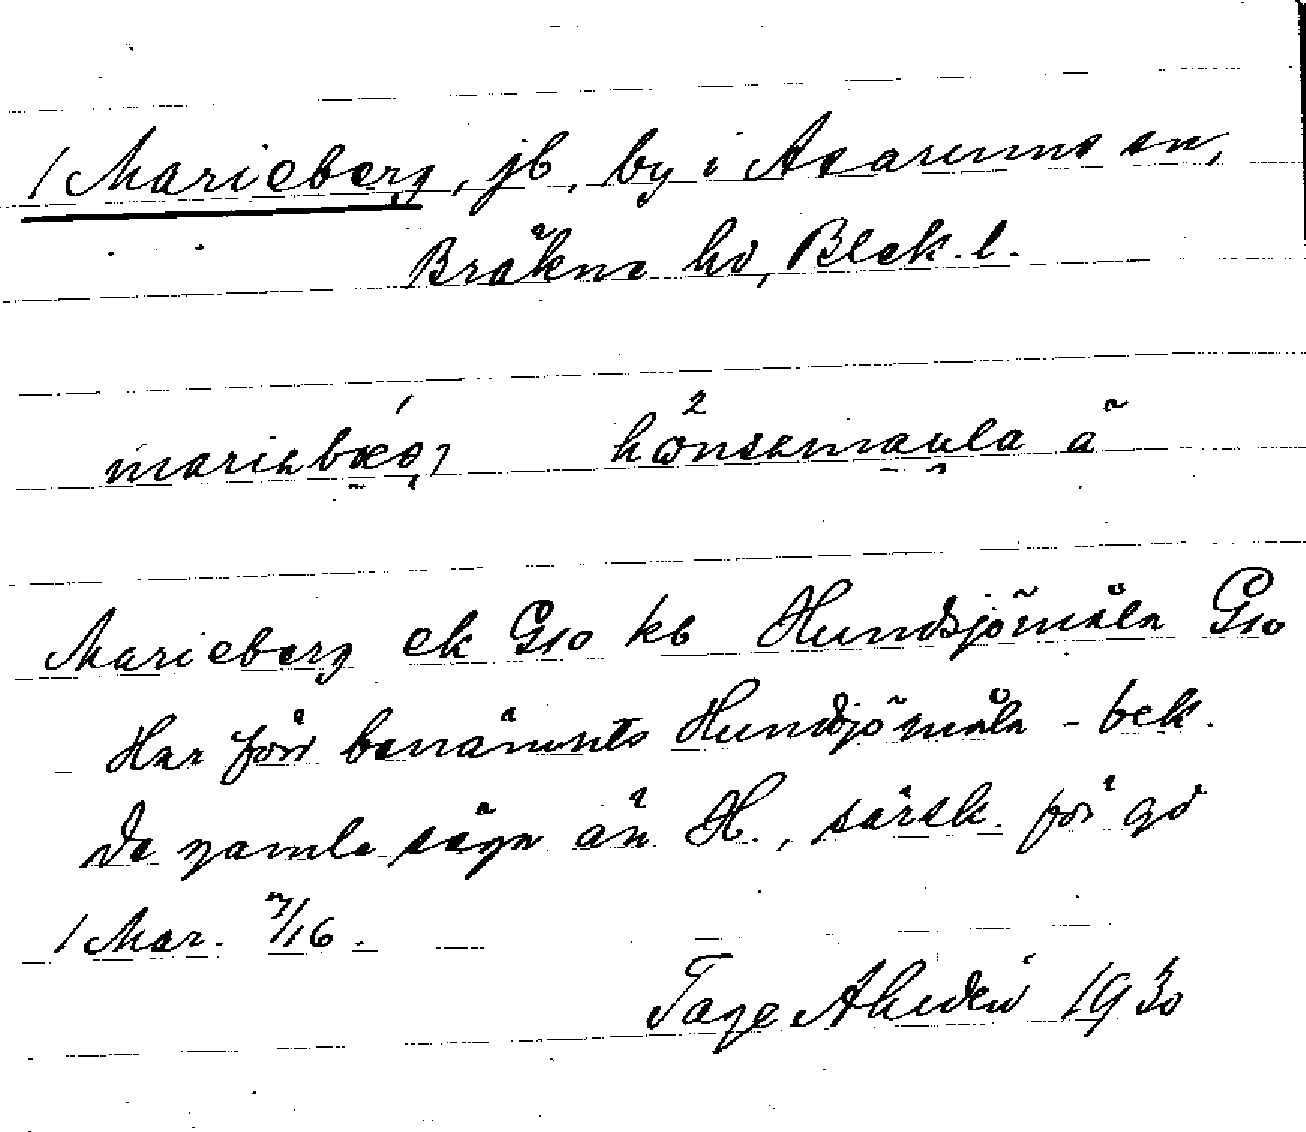 1 Marieberg, jb, by i Asarums sn,
Bräkne hd, Blek. l.
hönsamåla
Marieberg ek G10 kb Hundsjömåla G10
Har förr benämnts Hundsjömåla - bek.
De gamla säga än H., särsk. för gd
1 Mar. 7/16.
Tage Ahldén 1930